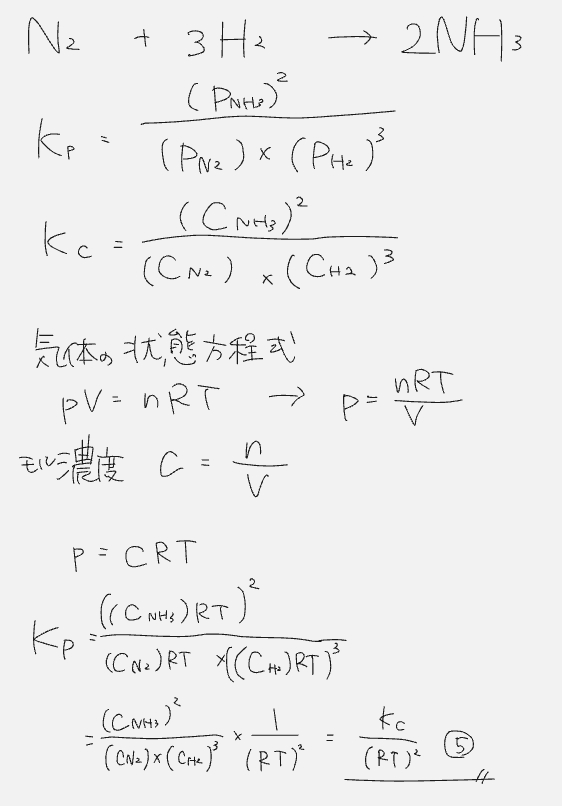 N₂ + 3H₂ → 2NH₃
Kp = (P_NH₃)² / (P_N₂) × (P_H₂)³
Kc = (C_NH₃)² / (C_N₂) × (C_H₂)³
気体の状態方程式
pV = nRT → p = nRT / V
モル濃度 C = n / V
p = CRT
Kp = ((C_NH₃)RT)² / (C_N₂)RT × ((C_H₂)RT)³
= (C_NH₃)² / (C_N₂) × (C_H₂)³ × 1 / (RT)² = Kc / (RT)² ⑤